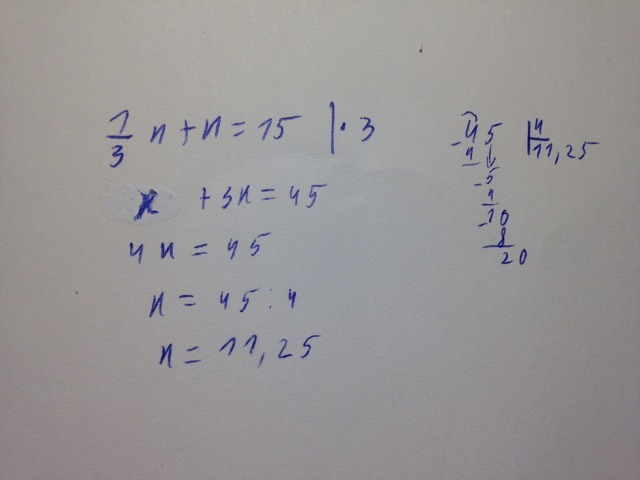 1/3 x + x = 15 | · 3
x + 3x = 45
4x = 45
x = 45 : 4
x = 11,25
45 | 4
- 4 | 11,25
- 5
4
- 10
8
20